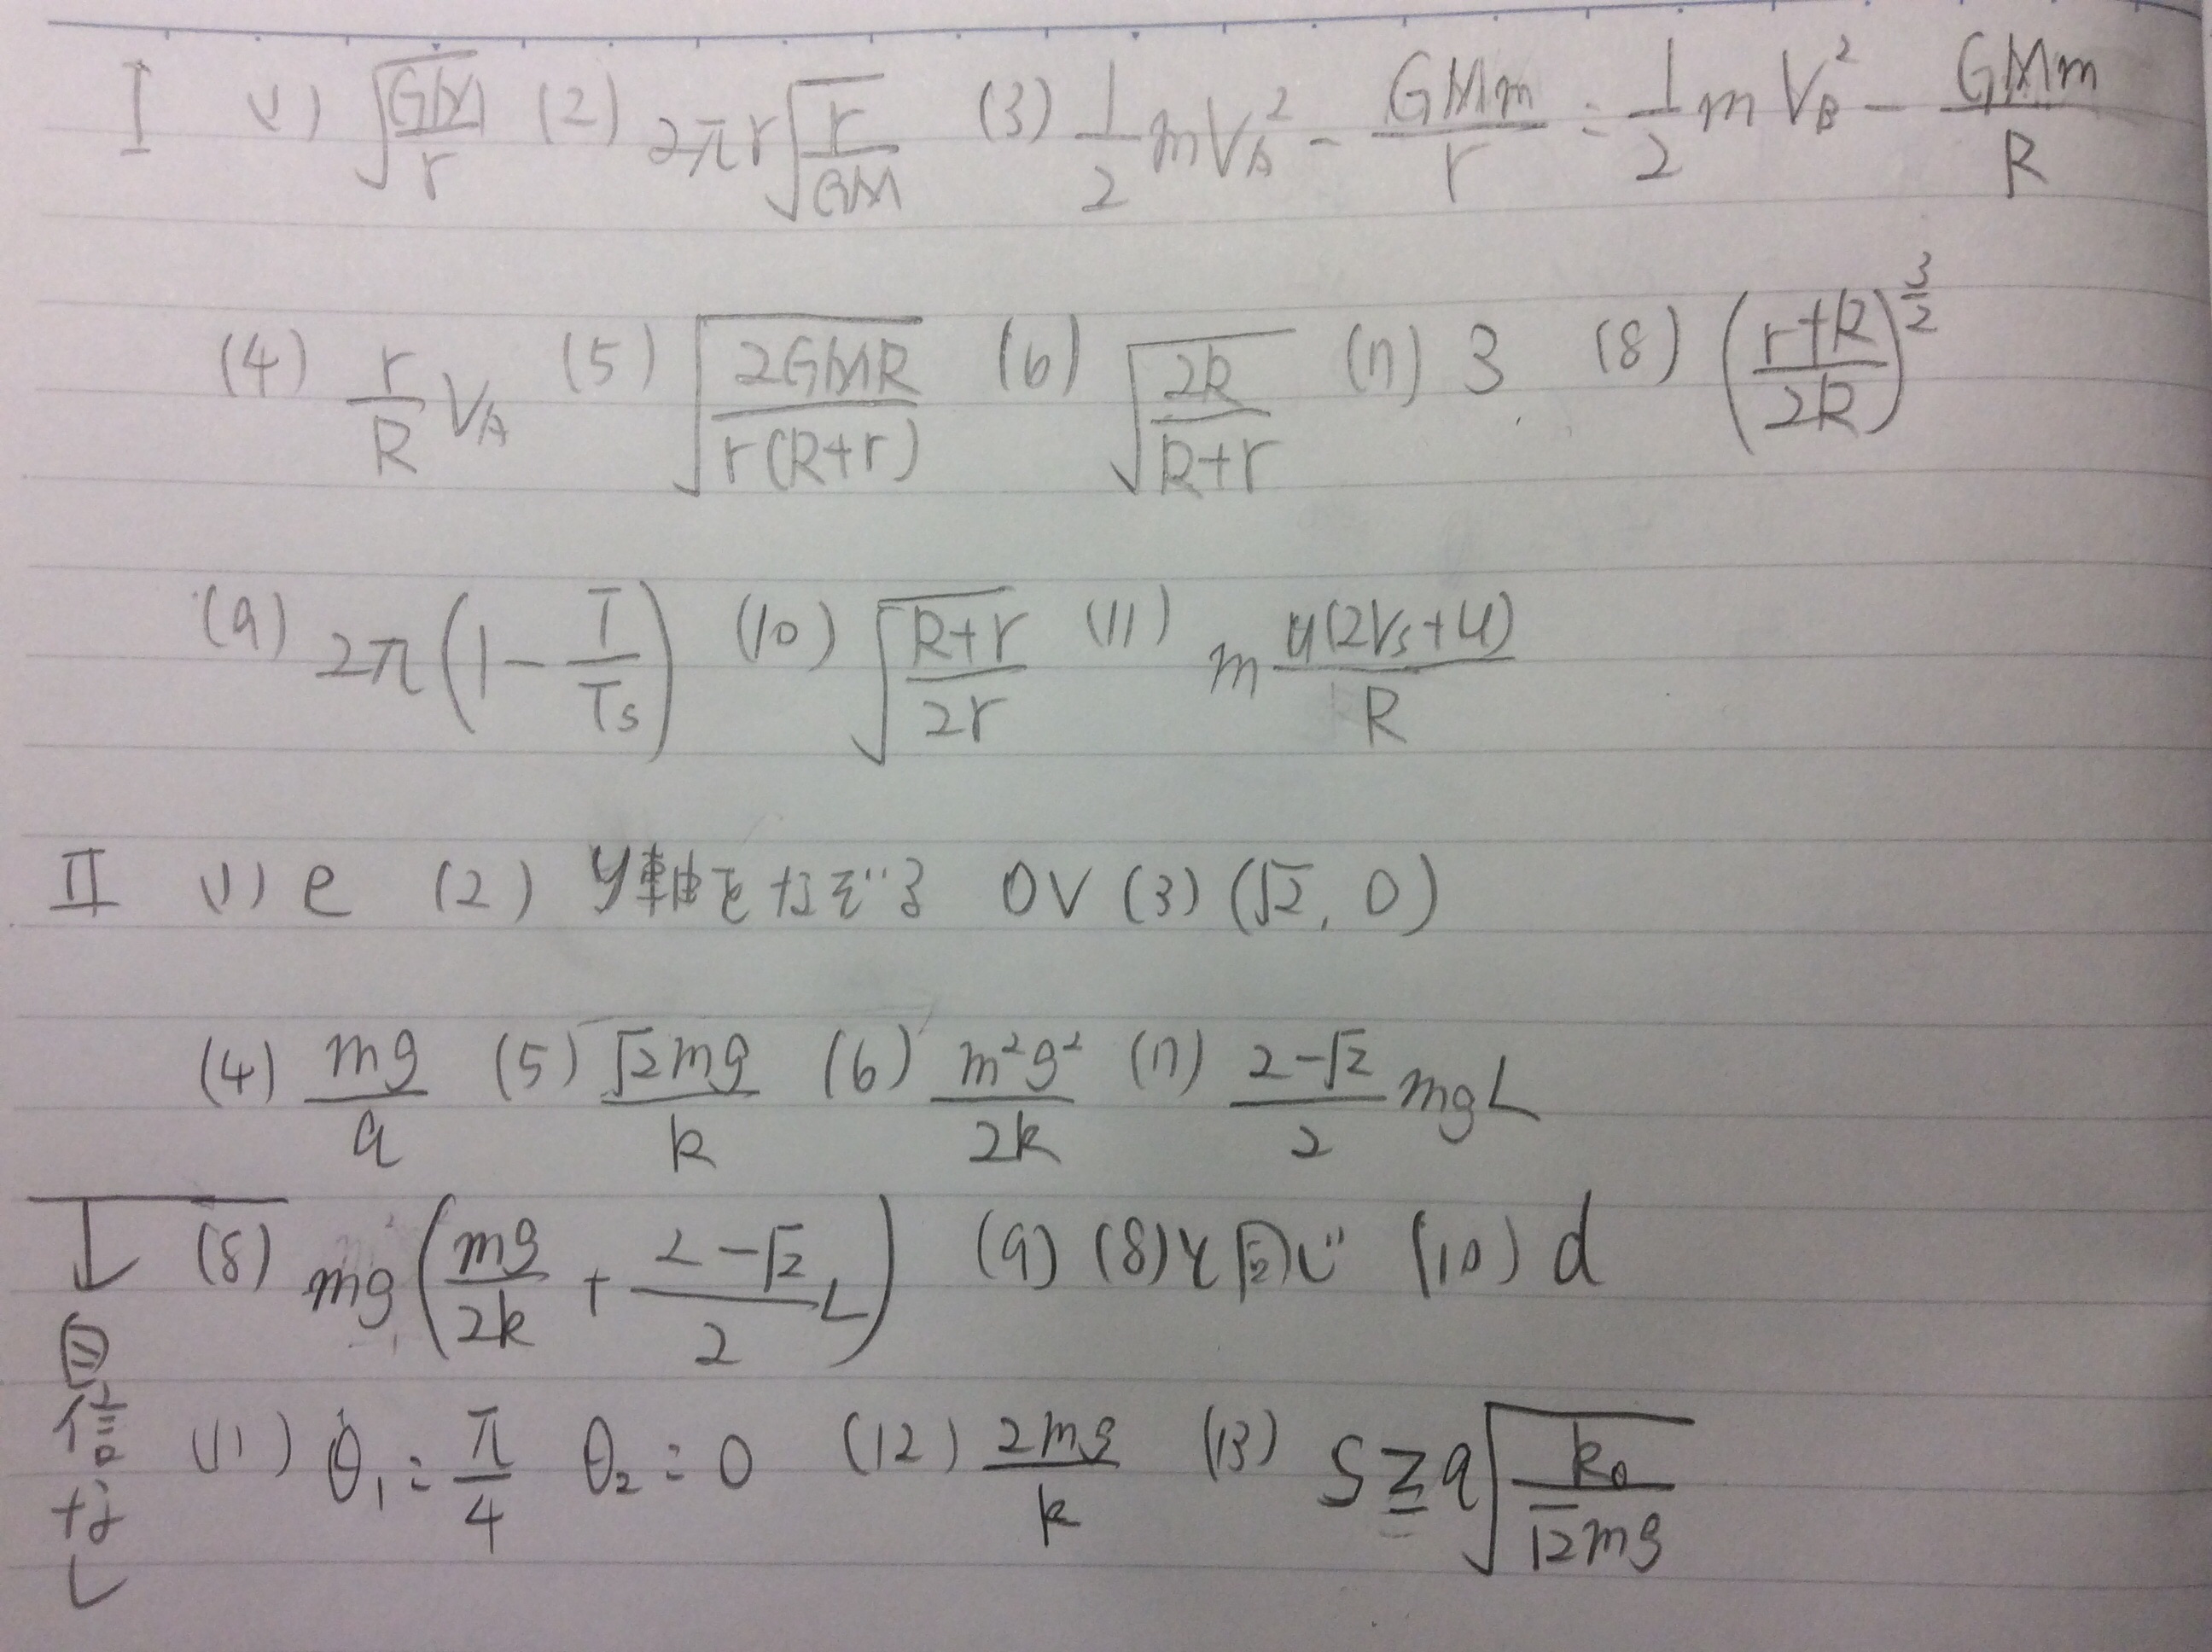 I (1) √(GM/r) (2) 2πr√(r/GM) (3) 1/2 mV_A² - GMm/r = 1/2 mV_B² - GMm/R
(4) r/R V_A (5) √(2GMR/r(R+r)) (6) √(2R/R+r) (7) 3 (8) (r+R/2R)^(3/2)
(9) 2π(1 - T/Ts) (10) √(R+r/2r) (11) m u(2Vs+u)/R
II (1) e (2) y軸をなぞる 0V (3) (√2, 0)
(4) mg/q (5) √2mg/k (6) m²g²/2k (7) 2-√2/2 mgL
(8) mg(mg/2k + 2-√2/2 L) (9) (8)と同じ (10) d
(11) θ₁=π/4 θ₂=0 (12) 2mg/k (13) S≧q√(k₀/√2mg)
↓自信なし